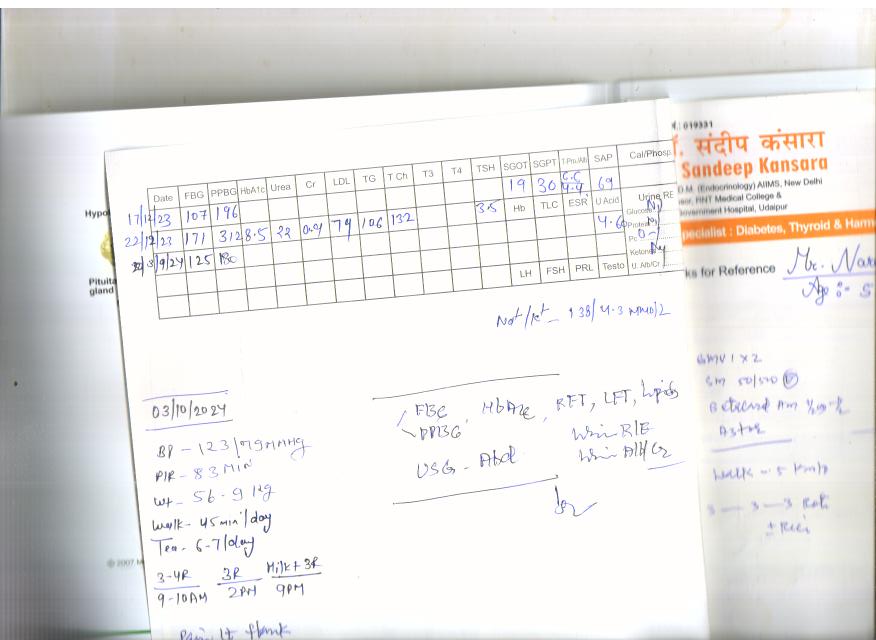 Date FBG PPBG HbA1c Urea Cr LDL TG T Ch T3 T4 TSH SGOT SGPT T.Pro./Alb SAP Cal/Phosp.
19 30 69
17/12/23 107 196
Hb TLC ESR U Acid Urine RE
22/12/23 171 312 8.5 22 0.9 79 106 132 3.5
Glucose
Protein
Pc
Ketone
3/9/24 125 180
LH FSH PRL Testo U. Alb/Cr
Na+/K+ - 138/4.3 mmol/L
03/10/2024
BP - 123/79 mmHg
P/R - 83 min
Wt - 56.9 Kg
Walk - 45 min/day
Tea - 6-7/day
3-4R 3R Milk + 3R
9-10AM 2PM 9PM
Pain Lt flank
FBG
PPBG, HbA1c, RFT, LFT, Lipids
Urine R/E
USG - Abd Urine Alb/Cr
Hypo
Pituita
gland
© 2007 M
.: 019331
. संदीप कंसारा
Sandeep Kansara
D.M. (Endocrinology) AIIMS, New Delhi
sor, RNT Medical College &
overnment Hospital, Udaipur
pecialist : Diabetes, Thyroid & Harm
ks for Reference Mr. Nar
Age :- 5
GMV 1 x 2
SM 50/500
Walk - 5 Km/D
3 — 3 — 3 Roti
± Rice